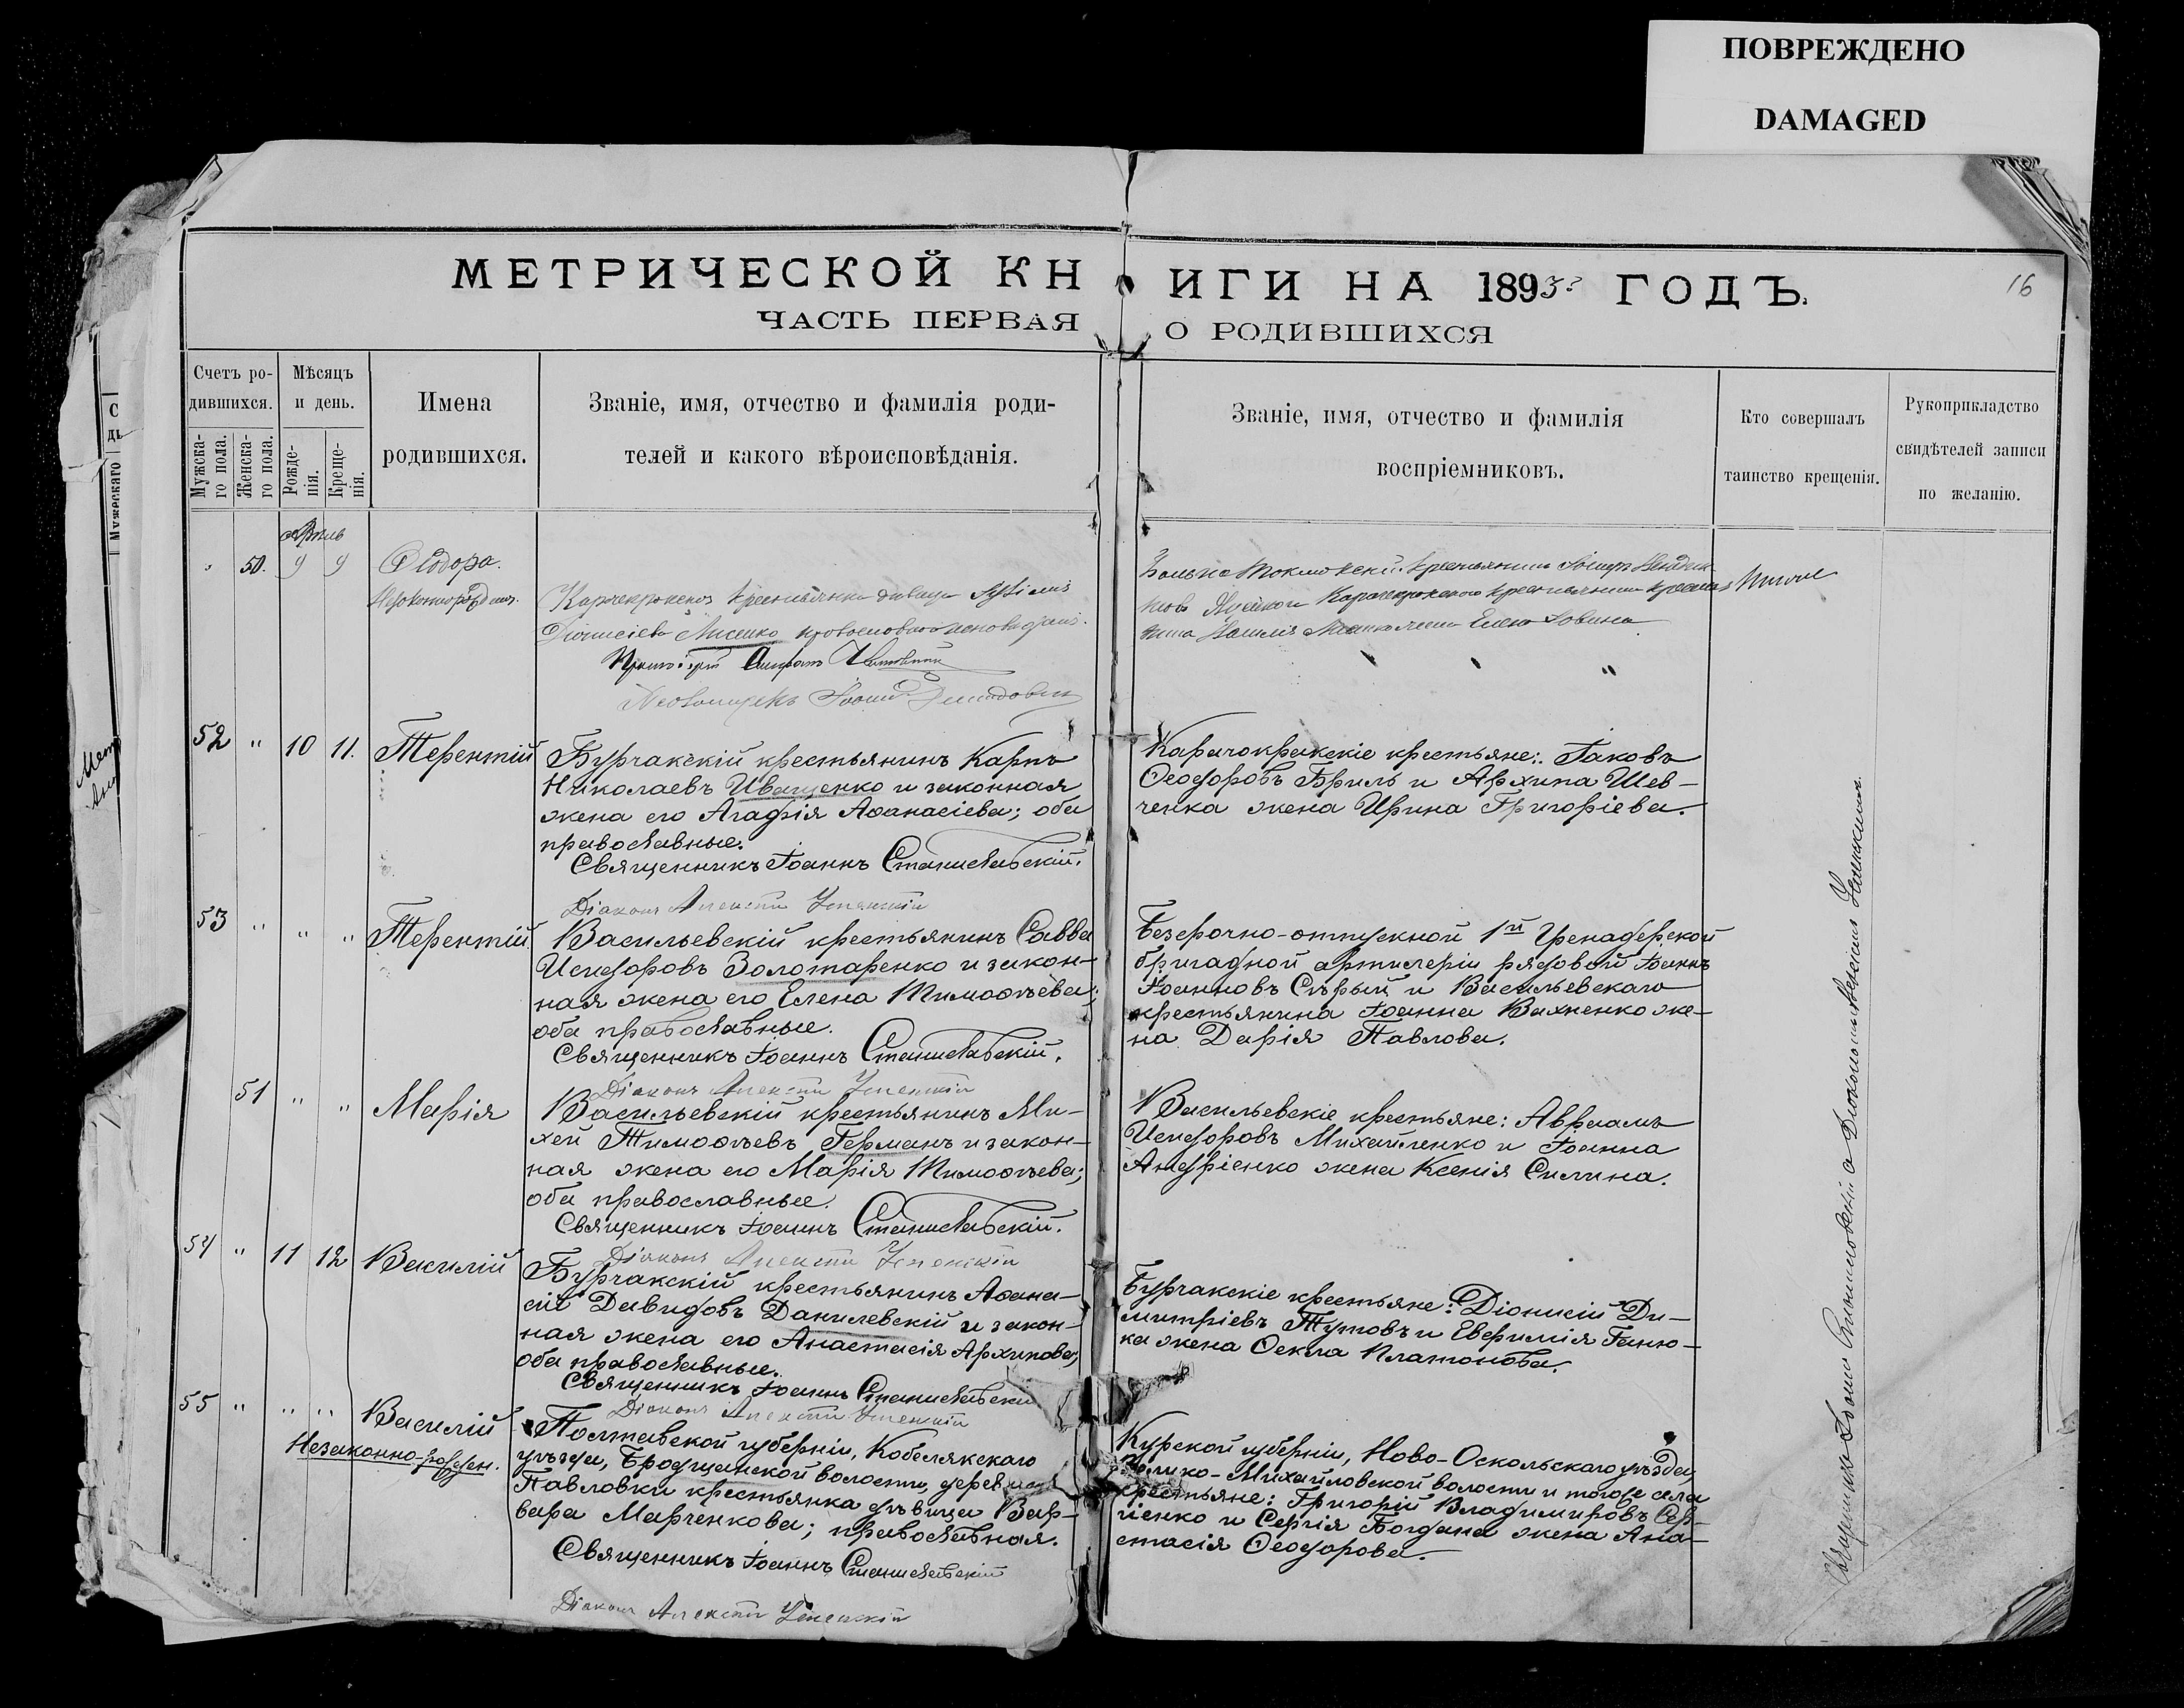 ПОВРЕЖДЕНО
DAMAGED
МЕТРИЧЕСКОЙ КНИГИ НА 1893 ГОДЪ.
16
ЧАСТЬ ПЕРВАЯ О РОДИВШИХСЯ
Счетъ ро-
дившихся.
Мужска-
го пола.
Женска-
го пола.
Мѣсяцъ
и день.
Рожде-
нія.
Креще-
нія.
Имена
родившихся.
Званіе, имя, отчество и фамилія роди-
телей и какого вѣроисповѣданія.
Званіе, имя, отчество и фамилія
воспріемниковъ.
Кто совершалъ
таинство крещенія.
Рукоприкладство
свидѣтелей записи
по желанію.
Апрѣль
50. 9 9 Ѳеодора.
крестьянка дѣвица
Діонисіева Лисенко
крестьянинъ
52 " 10 11. Терентій
Бурчакскій крестьянинъ Карпъ
Николаевъ Иващенко и законная
жена его Агафія Аѳанасіева; оба
православные.
Священникъ Іоаннъ Станиславскій.
Діаконъ Алексій Успенскій
Карачокракскіе крестьяне: Іаковъ
Ѳеодоровъ Бриль и Архипа Шев-
ченка жена Ирина Григоріева.
53 " " " Терентій
Васильевскій крестьянинъ Савва
Исидоровъ Золотаренко и закон-
ная жена его Елена Тимоѳѣева;
оба православные.
Священникъ Іоаннъ Станиславскій.
Діаконъ Алексій Успенскій
Безсрочно-отпускной 1й Гренадерской
бригадной артилеріи рядовой Іоаннъ
Іоанновъ Сѣрый и Васильевскаго
крестьянина Іоанна Вахненко же-
на Дарія Павлова.
51 " " Марія
Васильевскій крестьянинъ Ми-
хей Тимоѳѣевъ Германъ и закон-
ная жена его Марія Тимоѳѣева;
оба православные.
Священникъ Іоаннъ Станиславскій.
Діаконъ Алексій Успенскій
Васильевскіе крестьяне: Авраамъ
Исидоровъ Михайленко и Іоанна
Андріенко жена Ксенія Силина.
54 " 11 12 Василій
Бурчакскій крестьянинъ Аѳана-
сій Давидовъ Данилевскій и закон-
ная жена его Анастасія Архипова;
оба православные.
Священникъ Іоаннъ Станиславскі
Діаконъ Алексій Успенскій
Бурчакскіе крестьяне: Діонисій Ди-
митріевъ Тутовъ и Евфимія Ганю-
ка жена Ѳекла Платонова.
55 " " " Василій
Незаконно-рожден.
Полтавской губерніи, Кобелякскаго
уѣзда, Бродщанской волости, дерев
Павловки крестьянка дѣвица Вар-
вара Марченкова; православная.
Священникъ Іоаннъ Станиславскій
Діаконъ Алексій Успенскій
Курской губерніи, Ново-Оскольскаго уѣзда,
Велико-Михайловской волости и тогоже села
крестьяне: Григорій Владимировъ Сер-
гіенко и Сергія Богдана жена Ана-
стасія Ѳеодорова.
Священникъ Іоаннъ Станиславскій съ Діакономъ Алексіемъ Успенскимъ.